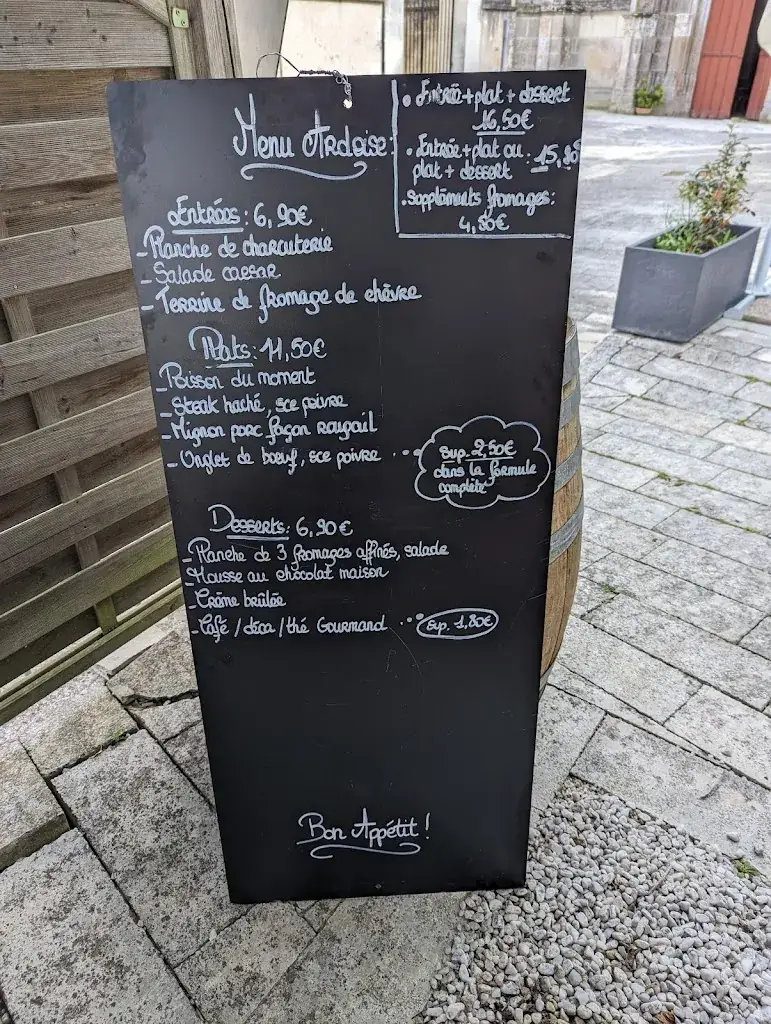 Menu Ardoise:
• Entrée + plat + dessert
16,50€
• Entrée + plat ou : 15,80
plat + dessert
• suppléments fromages:
4,50€
Entrées: 6,90€
- Planche de charcuterie
- Salade caesar
- Terrine de fromage de chèvre
Plats: 11,50€
- Poisson du moment
- Steak haché, sce poivre
- Mignon porc façon rougail
- Onglet de bœuf, sce poivre ...
sup. 2,50€
dans la formule
complète
Desserts: 6,90€
- Planche de 3 fromages affinés, salade
- Mousse au chocolat maison
- Crème brûlée
- Café / déca / thé Gourmand ... sup. 1,80€
Bon Appétit !